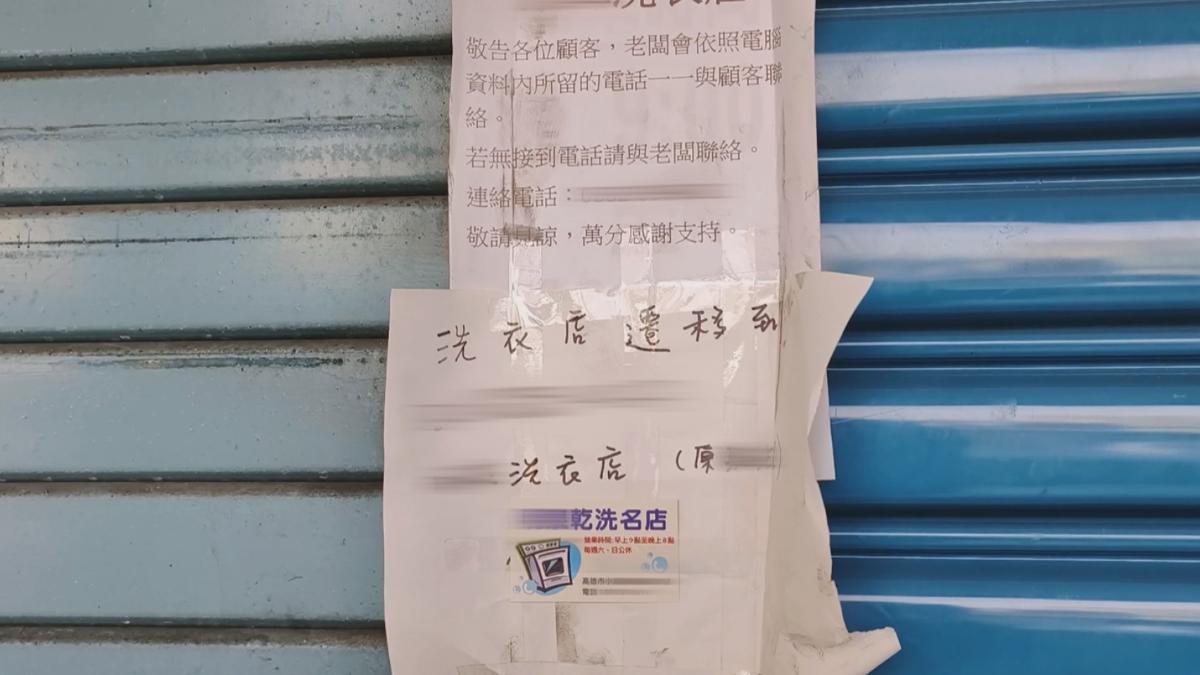 洗衣店
敬告各位顧客，老闆會依照電腦
資料內所留的電話一一與顧客聯
絡。
若無接到電話請與老闆聯絡。
連絡電話：
敬請見諒，萬分感謝支持。
洗衣店遷移到
洗衣店（原
乾洗名店
營業時間:早上9點至晚上8點
每週六、日公休
高雄市小
電話